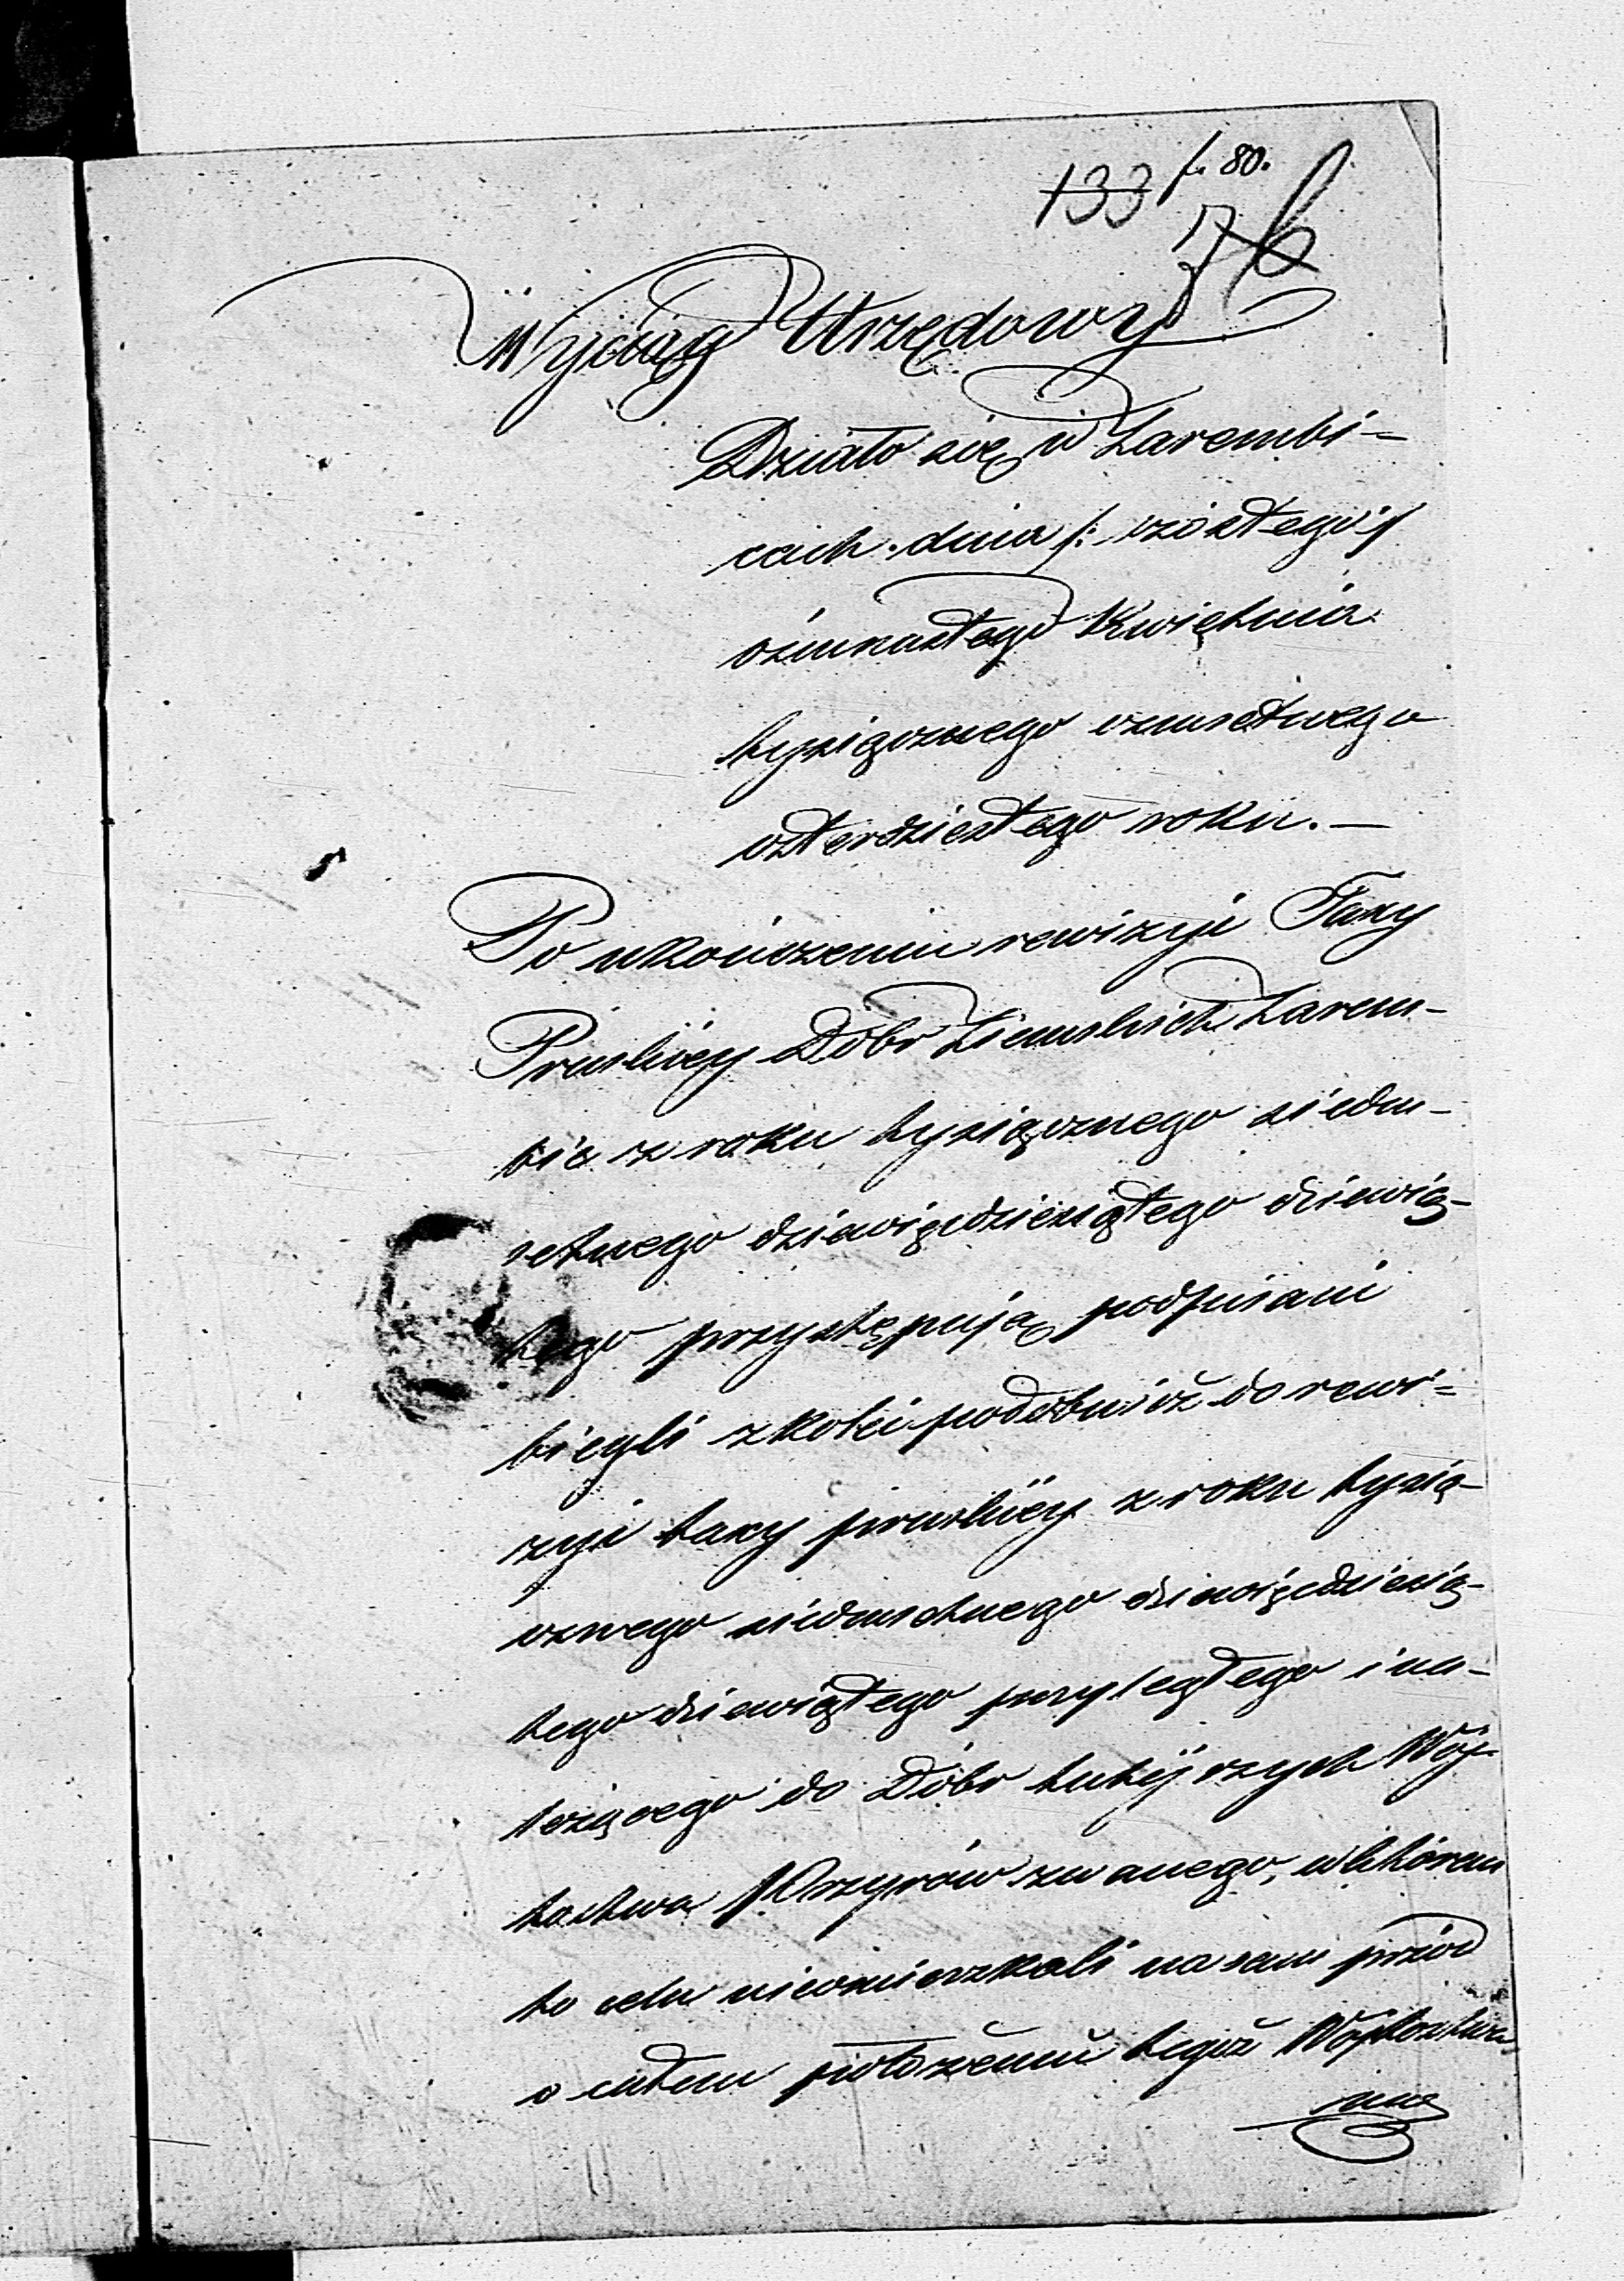 133 f. 80.
76
Wyciąg Urzędowy
Działo się w Zarembi-
cach dnia /: szóstego :/
ósmnastego Kwiętnia
tysiącznego ośmsetnego
czterdziestego roku. —
Po ukończeniu rewizyi Taxy
Pruskiéy Dóbr Ziemskich Zarem-
bic z roku tysiącznego siedm-
setnego dziewięćdziesiątego dziewią-
tego przystępują podpisani
biegli z koleji podobnież do rewi-
zyi taxy pruskiéy z roku tysią-
cznego siedmsetnego dziewięćdziesią-
tego dziewiątego przyległego i na-
leżącego do Dóbr tutéjszych Wój-
tostwa Przyrów zwanego, w którem
to celu nieomieszkali na sam przód
o całem położeniu tegoż Wójtostwa